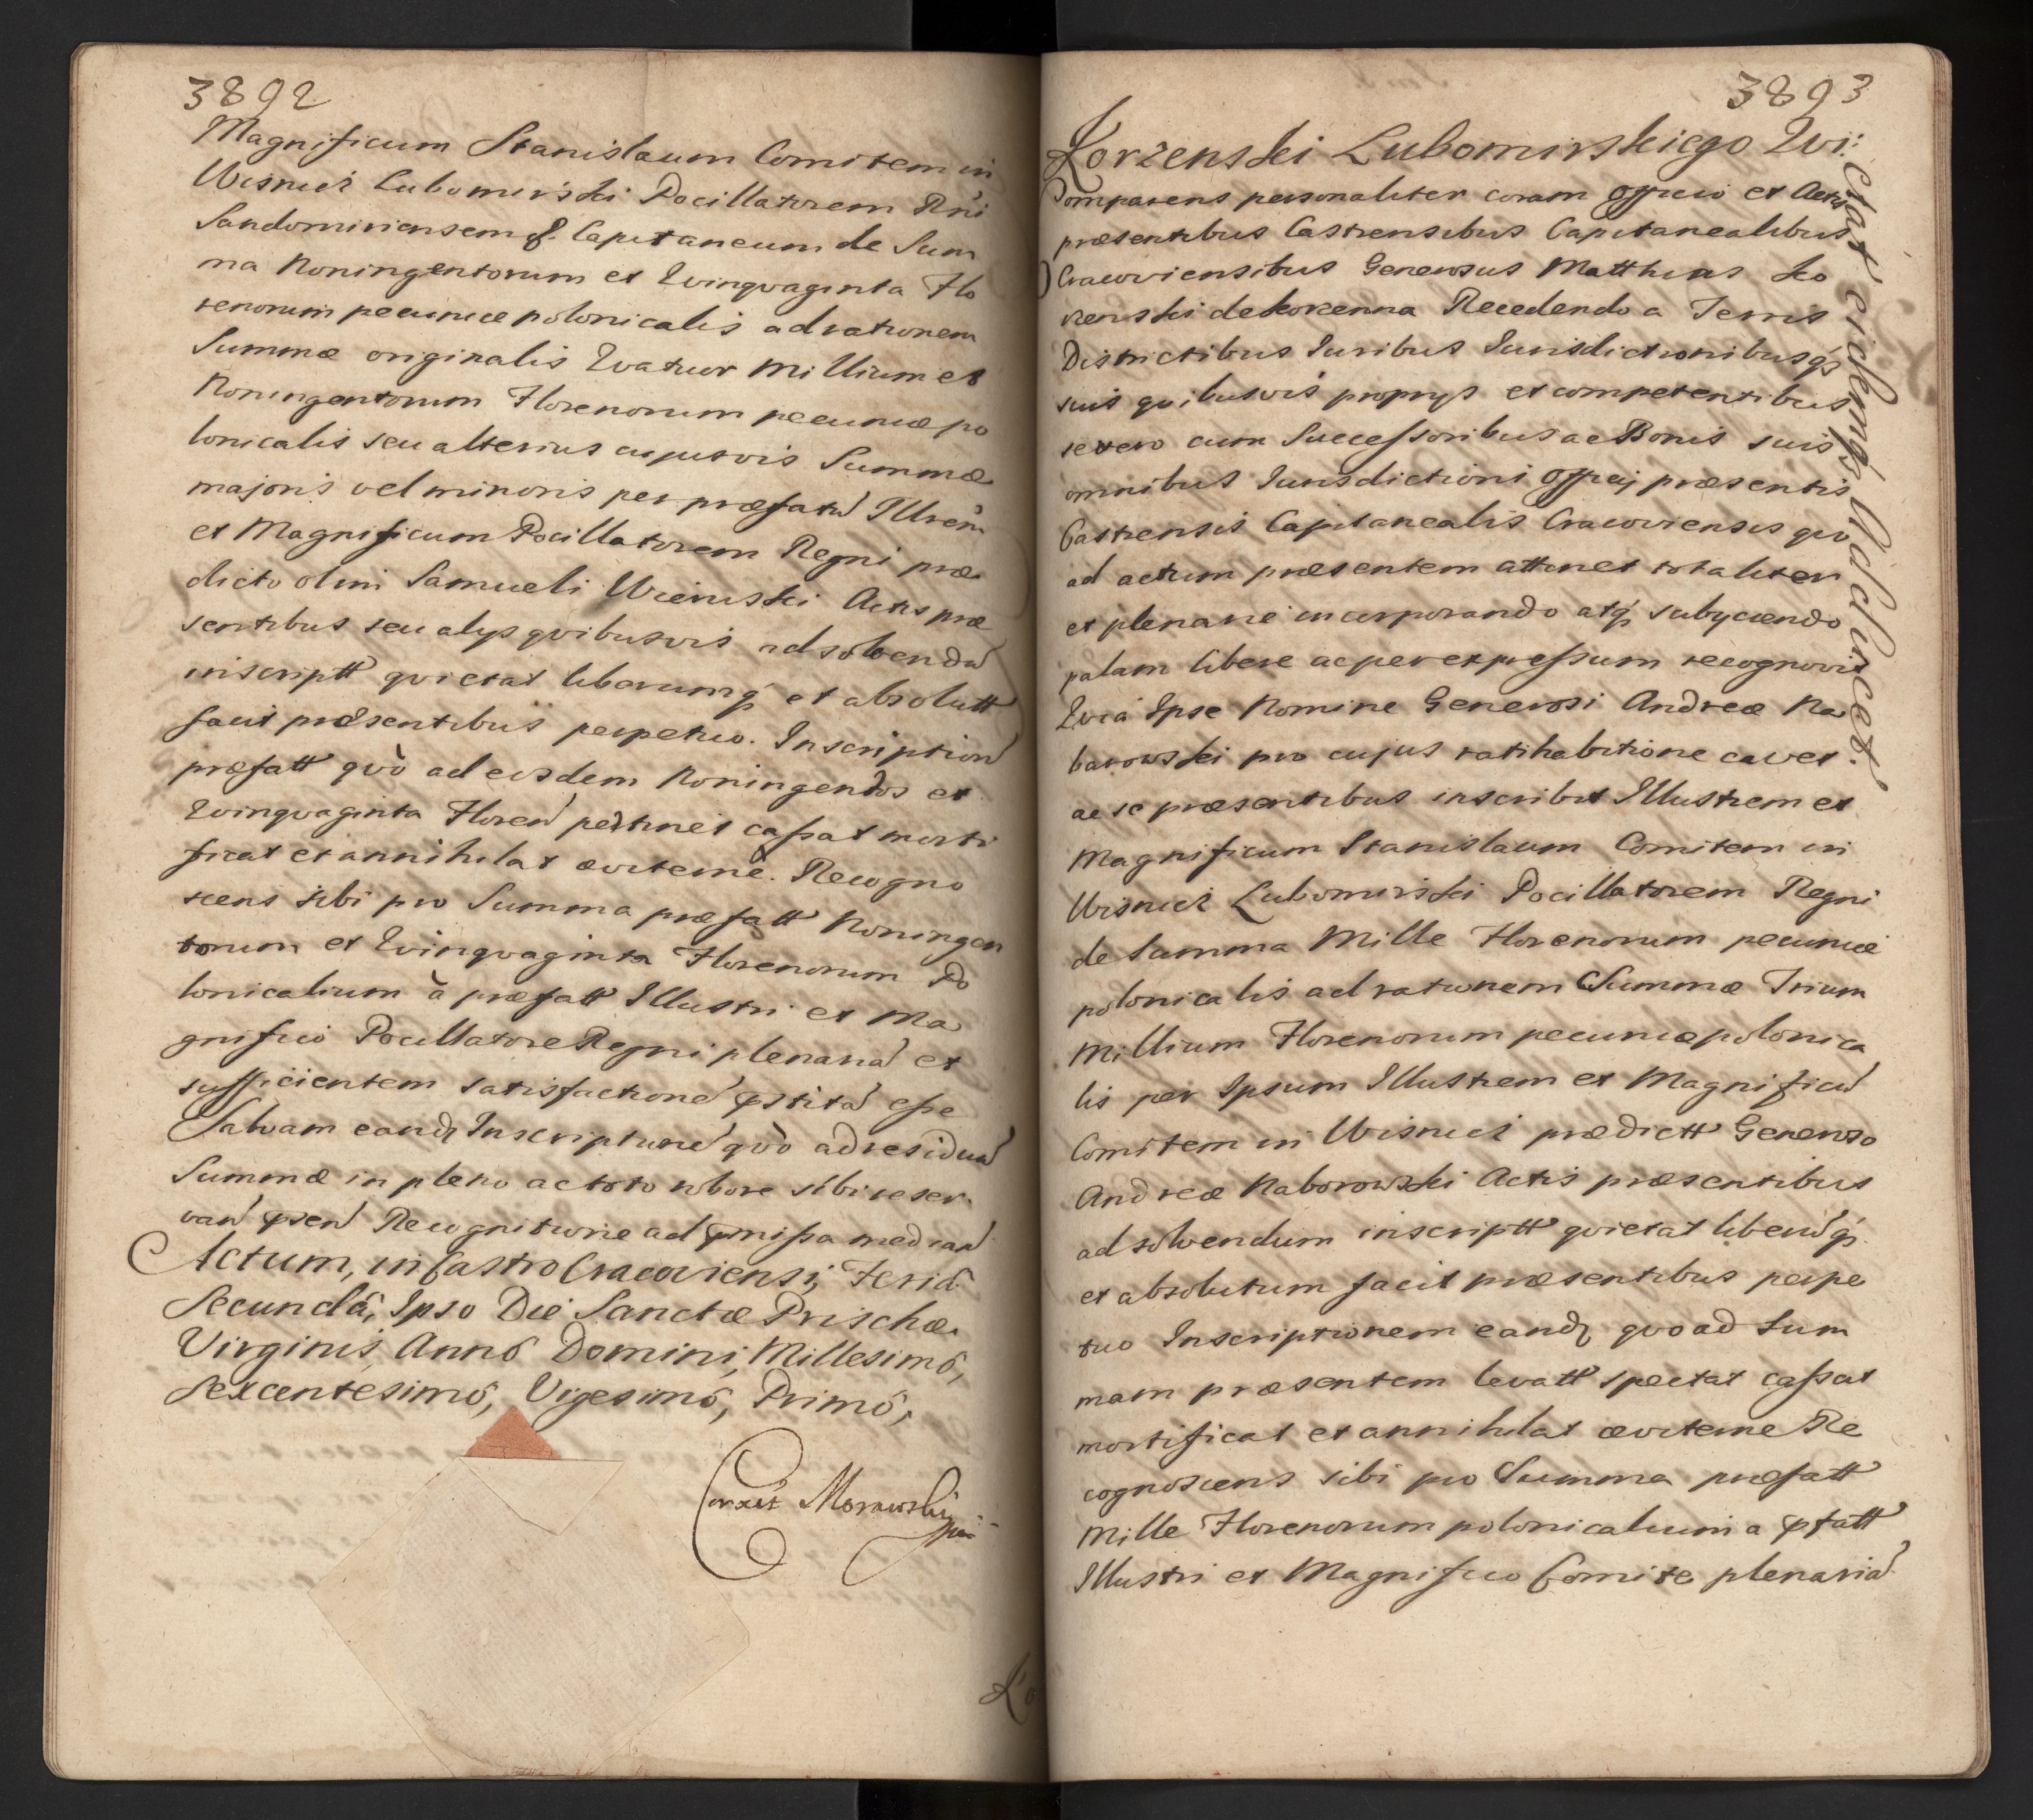 3892
Magnificum Stanislaum Comitem in
Wisnicz Lubomirski Pocillatorem Rni
Sandomiriensem &. Capitaneum de Sum
ma Noningentorum et Qvinqvaginta Flo
renorum pecuniæ polonicalis ad rationem
Summæ originalis Qvatuor Millium et
Noningentorum Florenorum pecuniæ po
lonicalis seu alterius cujusvis Summæ
majoris vel minoris per præfatũ Illrem
et Magnificum Pocillatorem Regni præ
dicto olim Samueli Wieruski Actis præ
sentibus seu alys qvibusvis ad solvendũ
inscriptt qvietat liberumq et absolutt
facit præsentibus perpetuo. Inscription
præfatt qvò ad eosdem Noningendos et
Qvinqvaginta Floren pertinet cassat morti
ficat et annihilat æviterne. Recogno
scens sibi pro Summa præfatt Noningen
torum et Qvinqvaginta Florenorum Po
lonicalium à præfatt Illustri et Ma
gnifico Pocillatore Regni plenariã et
sufficientem satisfactionẽ pstitã esse
Salvam eandẽ Inscriptionẽ qvò ad residuã
Summæ in pleno ac toto robore sibi reser
van psen Recognitione ad pmissa median
Actum, in Castro Cracoviensi, Feriâ
Secundâ, Ipso Die Sanctæ Prischæ
Virginis, Annô Domini, Millesimô,
Sexcentesimô, Vigesimô, Primô,
Correxit Morawski mp
Ko
3893
Korzenski Lubomirskiego Qvi:
etat eidemq Adhæcet.
Comparens personaliter coram Officio et Actis
præsentibus Castrensibus Capitanealibus
Cracoviensibus Generosus Matthias Ko
rzenski de Korzenna Recedendo a Terris
Districtibus Iuribus Iurisdictionibusq
suis qvibusvis proprys et competentibus
se vero cum Successoribus ac Bonis suis
omnibus Iurisdictioni Officij præsentis
Castrensis Capitanealis Cracoviensis qvo
ad actum præsentem attinet totaliter
et plenarie incorporando atq subyciendo
palam libere ac per expressum recognovit
Qvia Ipse Nomine Generosi Andreæ Na
borowski pro cujus ratihabitione cavet.
ac se præsentibus inscribit Illustrem et
Magnificum Stanislaum Comitem in
Wisnicz Lubomirski Pocillatorem Regni
de Summa Mille Florenorum pecuniæ
polonicalis ad rationem Summæ Trium
Millium Florenorum pecuniæ polonica
lis per Ipsum Illustrem et Magnificũ
Comitem in Wisnicz prædictt Generoso
Andreæ Naborowski Actis præsentibus
ad solvendum inscriptt qvietat liberũq
et absolutum facit præsentibus perpe
tuo Inscriptionem eandẽ qvoad Sum
mam præsentem levatt spectat cassat
mortificat et annihilat æviterne Re
cognoscens sibi pro Summa præfatt
Mille Florenorum polonicalium a pfatt
Illustri et Magnifico Comite plenariã